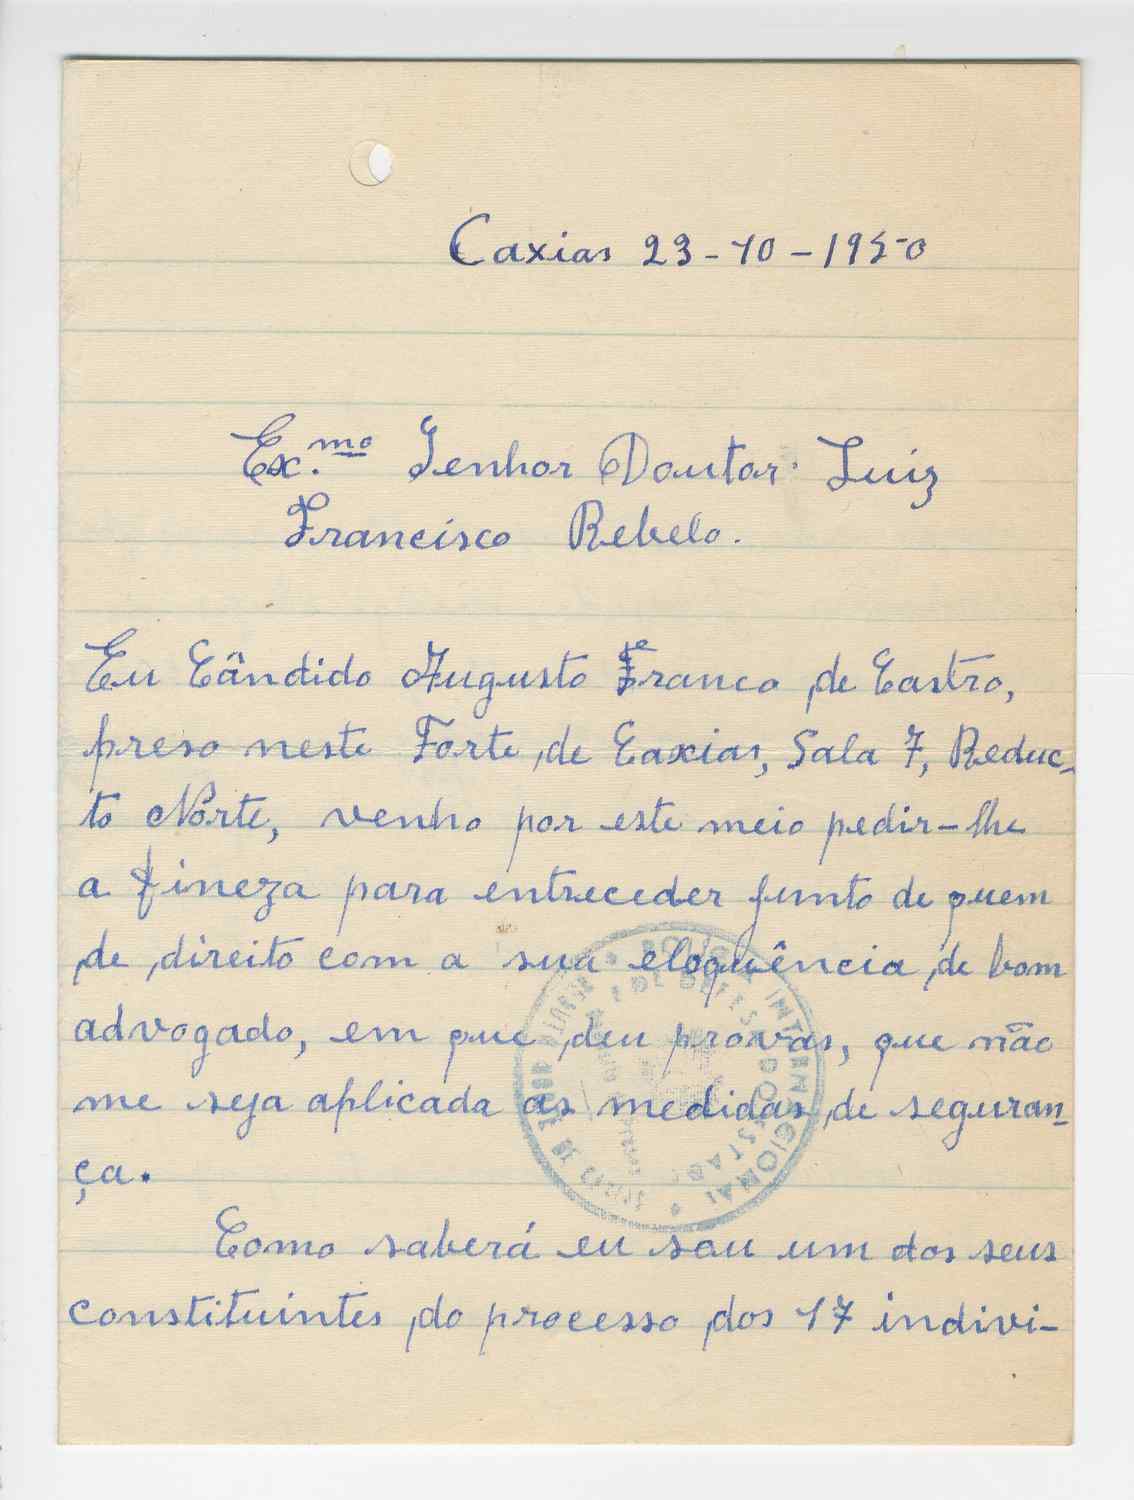 Caxias 23-10-1950
Ex.mo Senhor Doutor Luiz
Francisco Rebelo.
Eu Cândido Augusto Franco de Castro,
preso neste Forte de Caxias, Sala 7, Reduc-
to Norte, venho por este meio pedir-lhe
a fineza para entreceder junto de quem
de direito com a sua eloquência de bom
advogado, em que deu provas, que não
me seja aplicada as medidas de seguran-
ça.
Como saberá eu sou um dos seus
constituintes do processo dos 17 indivi-
POLICIA INTERNACIONAL
E DE DEFESA DO ESTADO